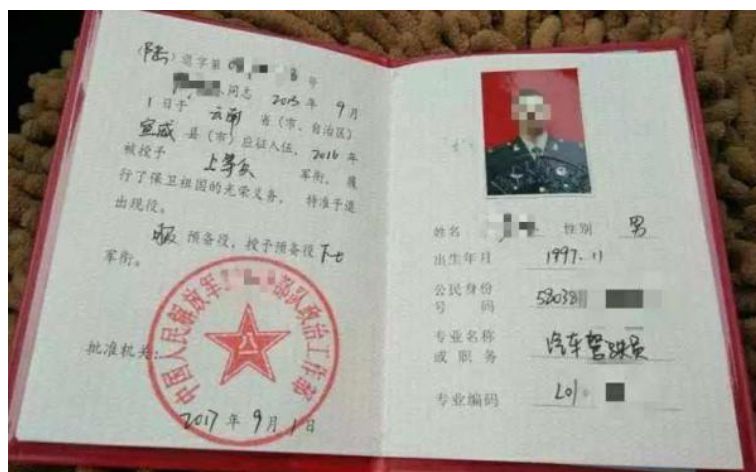 (陆)退字第 号
同志 2015 年 9 月
1 日于 云南 省(市、自治区)
宣威 县(市)应征入伍，2016 年
被授予 上等兵 军衔，履
行了保卫祖国的光荣义务，特准予退
出现役。
服 预备役，授予预备役 下士
军衔。
中国人民解放军 部队政治工作部
批准机关：
2017 年 9 月 1 日
姓名 性别 男
出生年月 1997.11
公民身份
号 码
专业名称
或 职 务 汽车驾驶员
专业编码